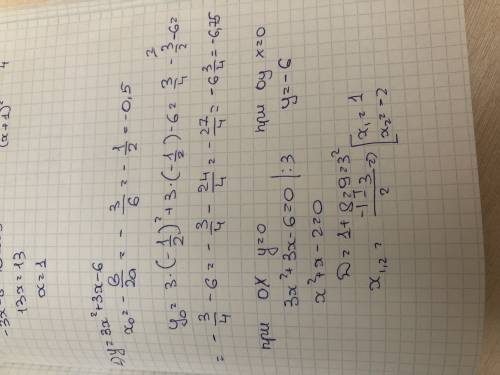 (x+1)² 4
13x=13
x=1
1) y=3x²+3x-6
x₀= - b/2a = - 3/6 = - 1/2 = -0,5
y₀= 3·(-1/2)²+3·(-1/2)-6= 3/4 - 3/2 -6=
= - 3/4 -6= - 3/4 - 24/4 = - 27/4 = -6 3/4 = -6,75
при OX y=0 при Oy x=0
3x²+3x-6=0 |:3 y=-6
x²+x-2=0
D=1+8=9=3²
x₁,₂= (-1±3)/2 => [x₁=1
[x₂=-2